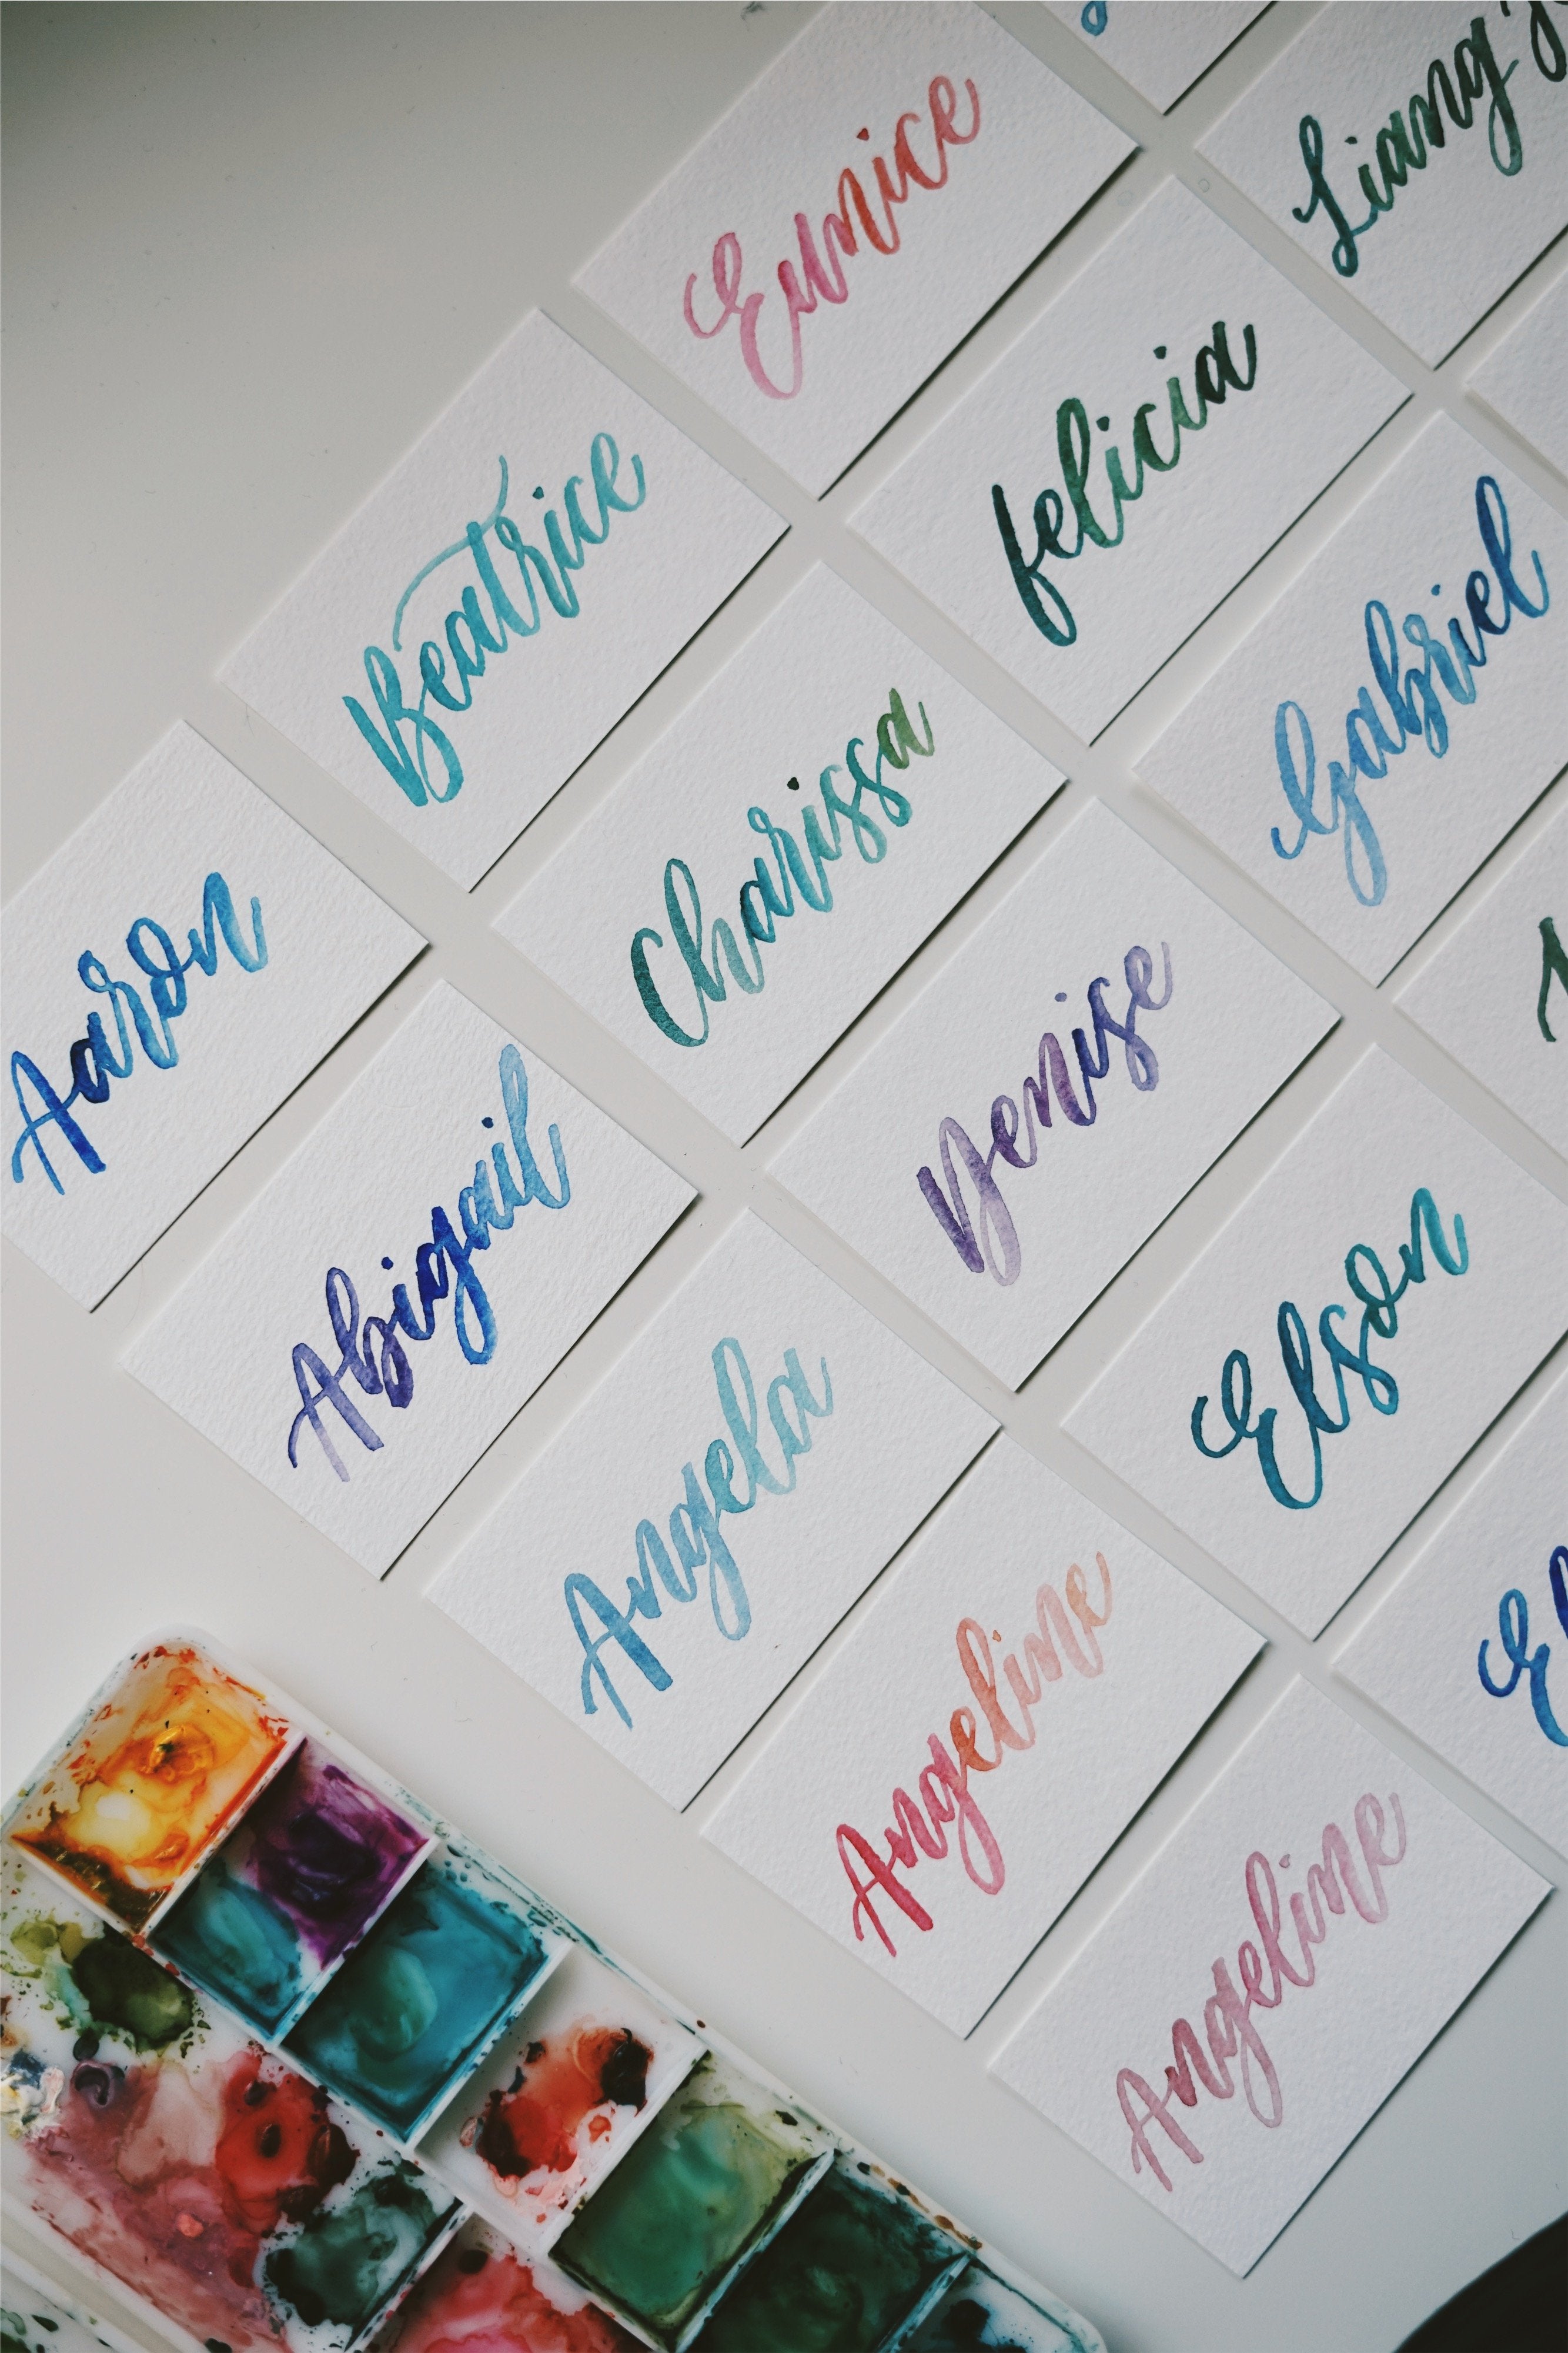 Aaron
Abigail
Angela
Angeline
Angeline
Beatrice
Charissa
Denise
Elson
Eunice
felicia
Gabriel